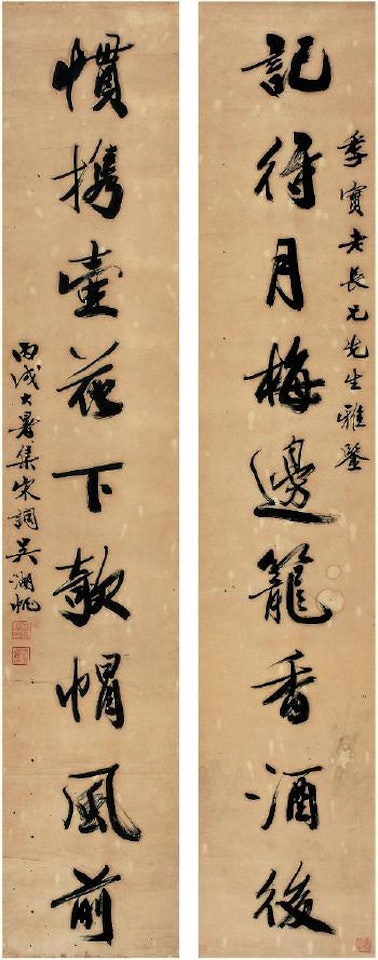 季實老長兄先生雅鑒
記得月梅邊籠香酒後
慣攜壺花下欹帽風前
丙戌大暑集宋詞吳湖帆